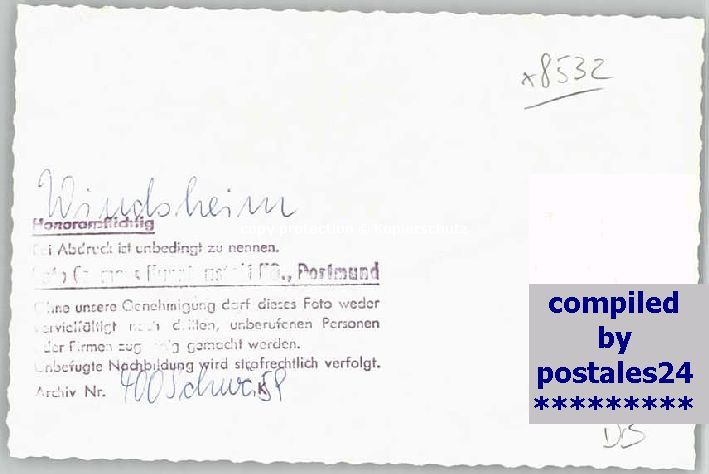 x8532
Windsheim
Honorarpflichtig
copy protection © Kopierschutz
Bei Abdruck ist unbedingt zu nennen.
Foto Dortmund
Ohne unsere Genehmigung darf dieses Foto weder
vervielfältigt noch dritten, unberufenen Personen
oder Firmen zugängig gemacht werden.
Unbefugte Nachbildung wird strafrechtlich verfolgt.
Archiv Nr. 400
compiled
by
postales24
*********
DB